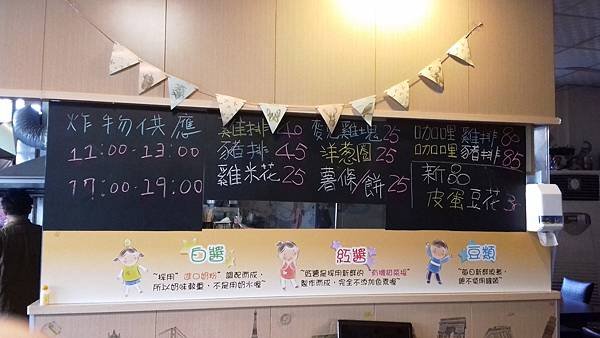 炸物供應
11:00-13:00
17:00-19:00
雞排40
豬排45
雞米花25
麥克雞塊25
洋葱圈25
薯條餅25
咖哩雞排80
咖哩豬排85
新品
皮蛋豆花3
白醬
"採用"進口奶粉"調配而成,
所以奶味較重,不是用奶水喔~
紅醬
"紅醬是採用新鮮的"有機甜菜根"
製作而成,完全不添加色素喔~
豆類
"每日新鮮現煮,
絕不使用罐頭"